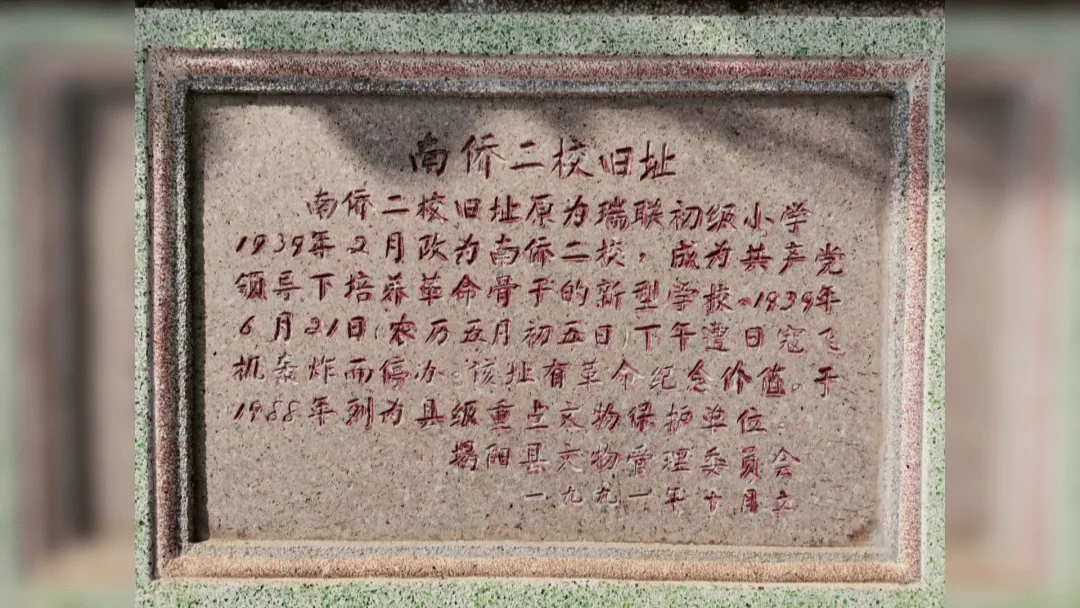 南侨二校旧址
南侨二校旧址原为瑞联初级小学
1939年2月改为南侨二校，成为共产党
领导下培养革命骨干的新型学校。1939年
6月21日(农历五月初五日)下午遭日寇飞
机轰炸而停办。该址有革命纪念价值。于
1988年列为县级重点文物保护单位。
揭阳县文物管理委员会
一九九一年十月立